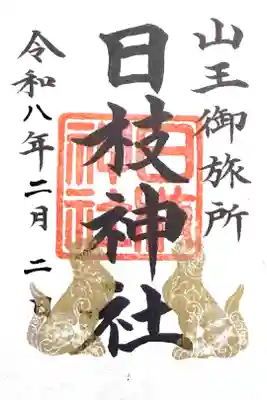 山王御旅所
日枝神社
令和八年二月二日